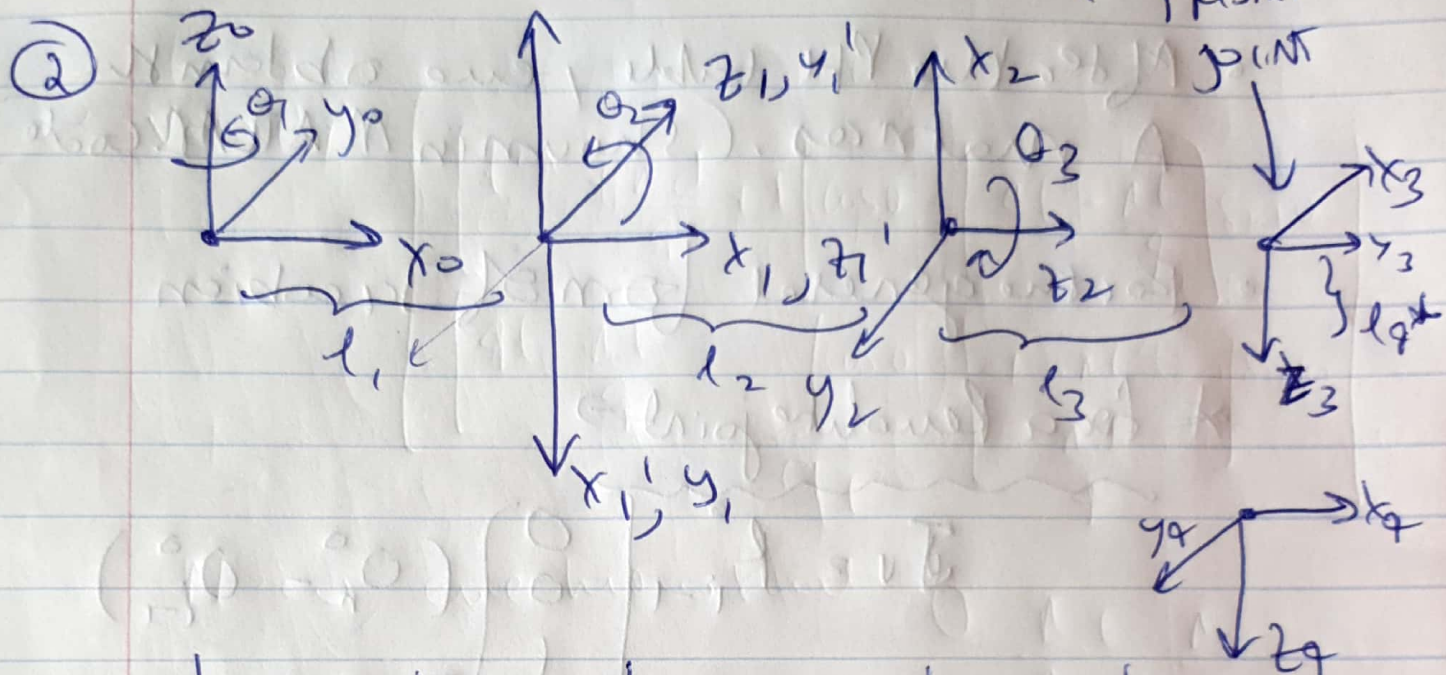 ②
z0
θ1
y0
x0
l1
θ2
z1, y1'
x1, z1'
x1', y1
l2
x2
θ3
z2
y2
l3
JOINT
x3
y3
l4*
z3
x4
y4
z4